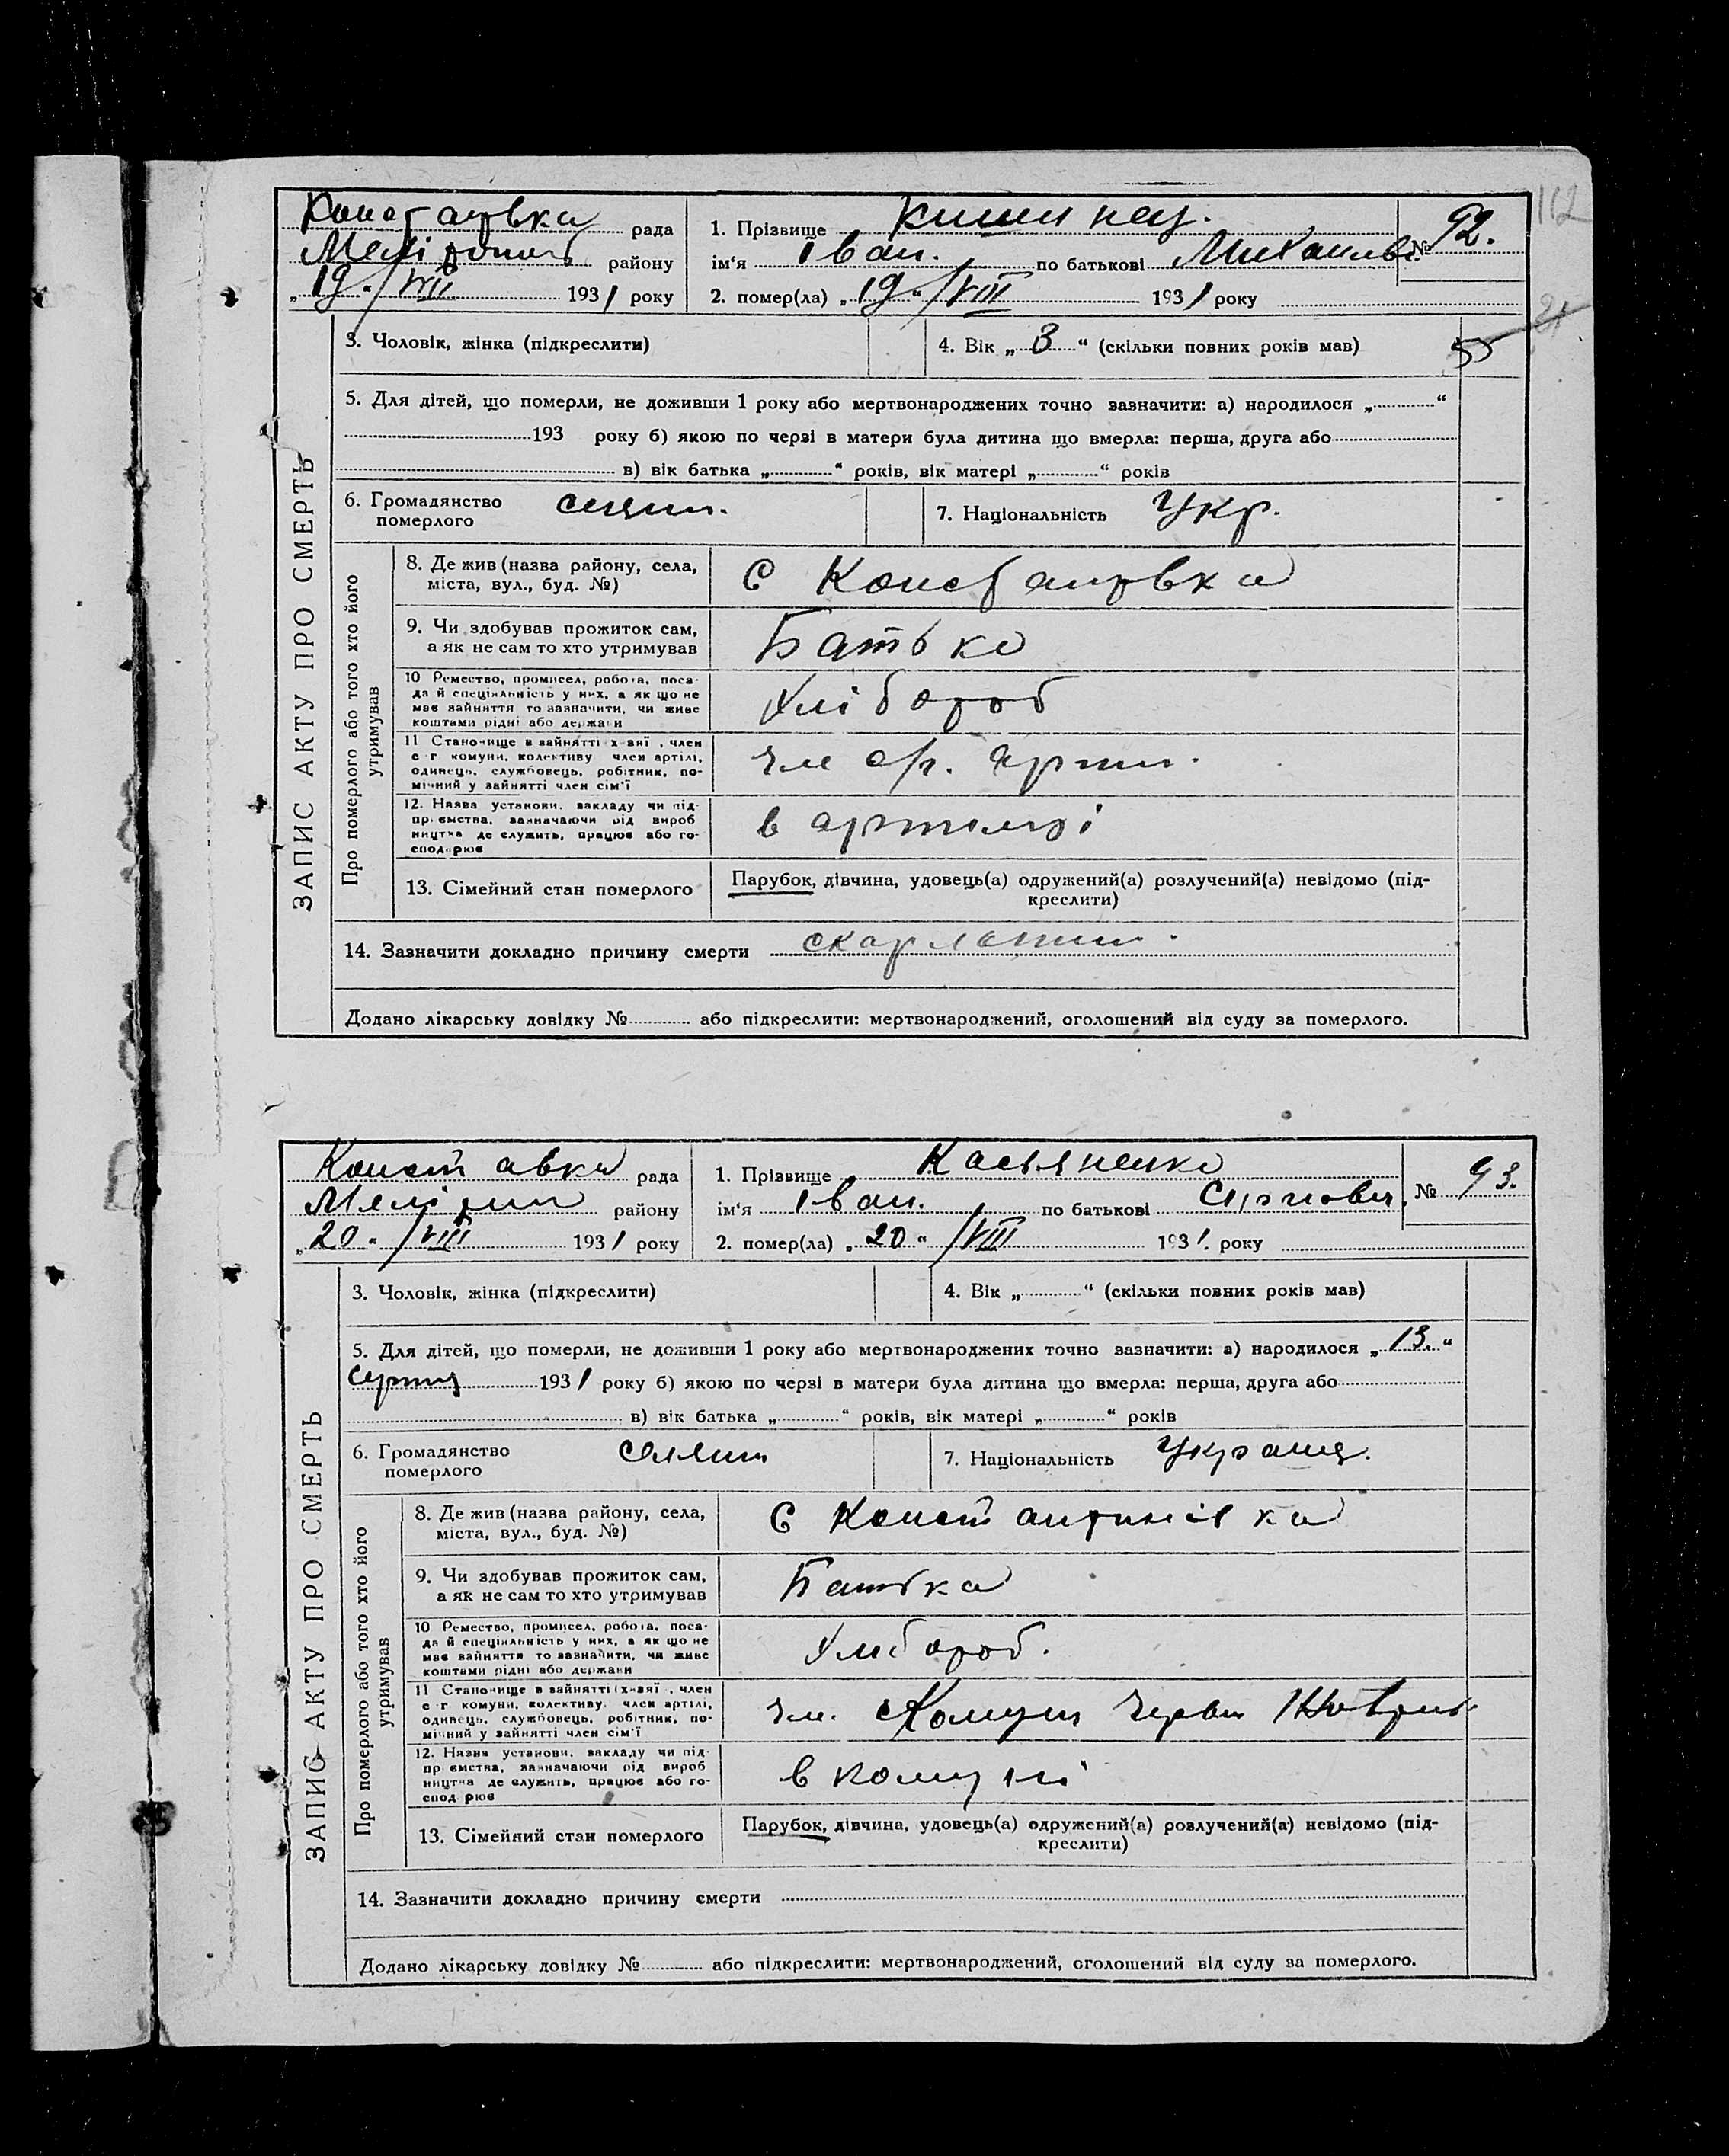 112
Констаντвка рада 1. Прізвище Кишинец. № 92.
Мелітопол району ім‘я Іван. по батькові Михаилов.
„19“/VIII 1931 року 2. помер(ла) „19“/VIII 1931 року
21
3. Чоловік, жінка (підкреслити) 4. Вік „3“ (скільки повних років мав) 55
5. Для дітей, що померли, не доживши 1 року або мертвонароджених точно зазначити: а) народилося „ “
193 року б) якою по черзі в матери була дитина що вмерла: перша, друга або
в) вік батька „ “ років, вік матері „ “ років
6. Громадянство 7. Національність Укр.
померлого
ЗАПИС АКТУ ПРО СМЕРТЬ
Про померлого або того хто його
утримував
8. Де жив (назва району, села, С Констаντвка
міста, вул., буд. №)
9. Чи здобував прожиток сам, Батько
а як не сам то хто утримував
10 Ремество, промисел, робота, поса- Хлібороб
да й спеціяльність у них, а як що не
має зайняття то зазначити, чи живе
коштами рідні або держави
11 Становище в зайнятті х-вяї, член чле с/г. Артил.
с г комуни, колективу член артілі,
одинець, службовець, робітник, по-
мічний у зайнятті член сім'ї
12. Назва установи, закладу чи під- в артилі
приємства, зазначаючи рід вироб
ництва де служить, працює або го-
сподарює
13. Сімейний стан померлого Парубок, дівчина, удовець(а) одружений(а) розлучений(а) невідомо (під-
креслити)
14. Зазначити докладно причину смерти скарлатин.
Додано лікарську довідку № або підкреслити: мертвонароджений, оголошений від суду за померлого.
Конставка рада 1. Прізвище Касьяненко № 93.
району ім‘я Іван. по батькові
„20“/VIII 1931 року 2. помер(ла) „20“/VIII 1931. року
3. Чоловік, жінка (підкреслити) 4. Вік „ “ (скільки повних років мав)
5. Для дітей, що померли, не доживши 1 року або мертвонароджених точно зазначити: а) народилося „13.“
серпня 1931 року б) якою по черзі в матери була дитина що вмерла: перша, друга або
в) вік батька „ “ років, вік матері „ “ років
6. Громадянство 7. Національність Украинц.
померлого
ЗАПИС АКТУ ПРО СМЕРТЬ
Про померлого або того хто його
утримував
8. Де жив (назва району, села, С Константинівка
міста, вул., буд. №)
9. Чи здобував прожиток сам, Батька
а як не сам то хто утримував
10 Ремество, промисел, робота, поса- Хлібороб.
да й спеціяльність у них, а як що не
має зайняття то зазначити, чи живе
коштами рідні або держави
11 Становище в зайнятті х-вяї, член чле. Комуни Червон
с г комуни, колективу член артілі,
одинець, службовець, робітник, по-
мічний у зайнятті член сім'ї
12. Назва установи, закладу чи під- в комуні
приємства, зазначаючи рід вироб
ництва де служить, працює або го-
сподарює
13. Сімейний стан померлого Парубок, дівчина, удовець(а) одружений(а) розлучений(а) невідомо (під-
креслити)
14. Зазначити докладно причину смерти
Додано лікарську довідку № або підкреслити: мертвонароджений, оголошений від суду за померлого.